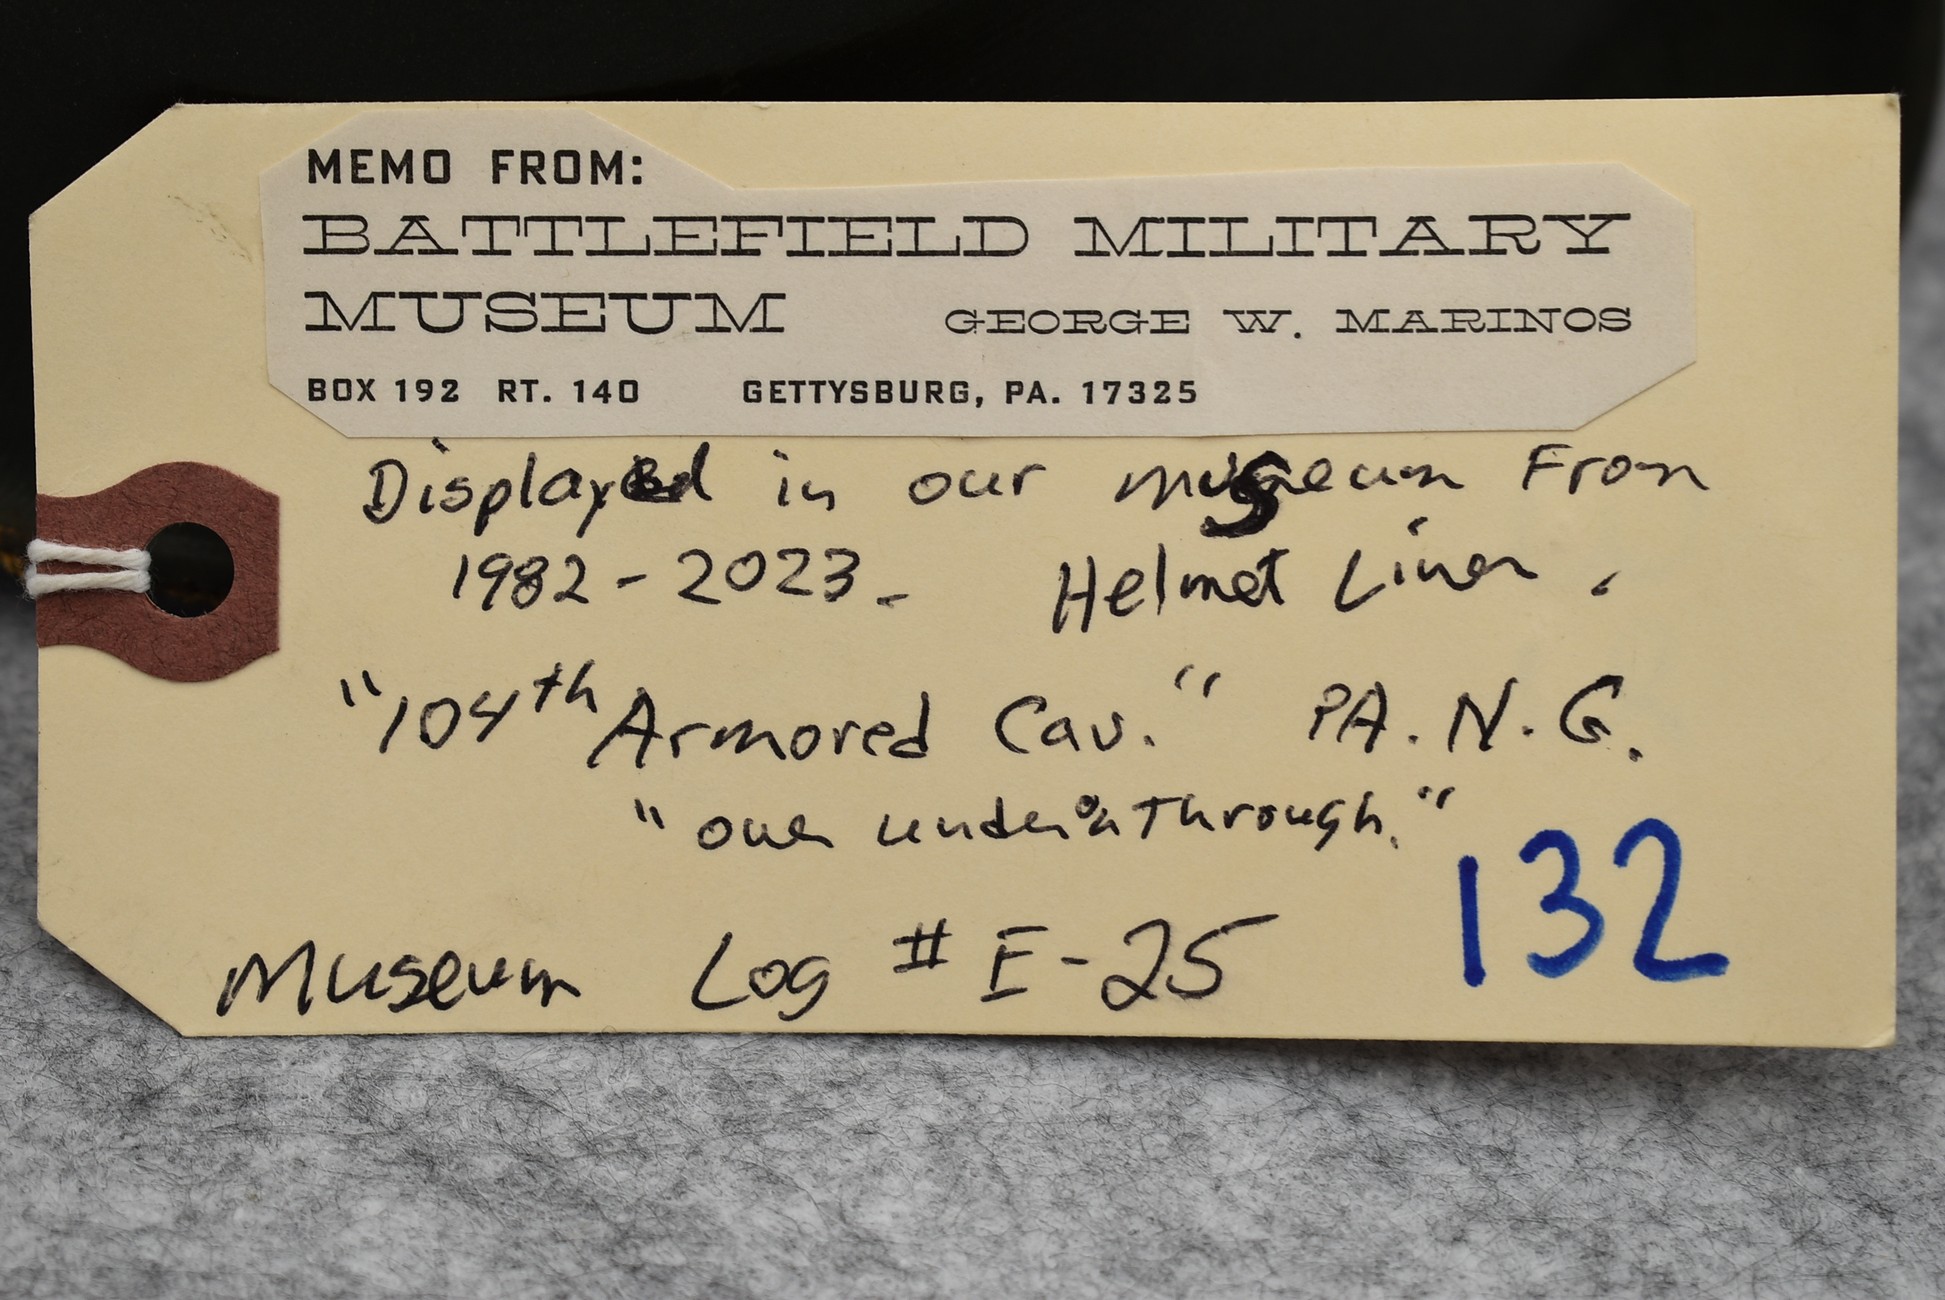 MEMO FROM:
BATTLEFIELD MILITARY
MUSEUM GEORGE W. MARINOS
BOX 192 RT. 140 GETTYSBURG, PA. 17325
Displayed in our museum From
1982-2023. Helmet Liner.
"104th Armored Cav." PA. N. G.
"over under Through."
132
Museum Log # E-25